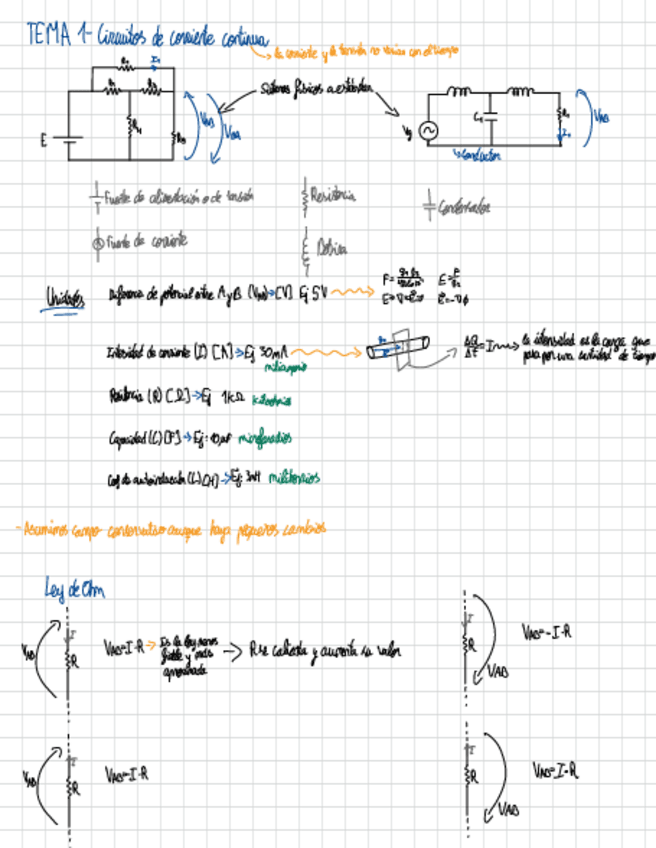 TEMA 1- Circuitos de corriente continua
la corriente y la tensión no varían con el tiempo
Sistemas físicos a estudiar
E
R4
Vg
C1
conductor
VAB
Fuente de alimentación o de tensión
Resistencia
Condensador
Fuente de corriente
Bobina
Unidades
Diferencia de potencial entre A y B (VAB)→[V] Ej 5V
Intensidad de corriente (I) [A]→Ej 30mA
miliamperio
ΔQ/Δt = I
la intensidad es la carga que
pasa por una cantidad de tiempo
Resistencia (R) [Ω]→Ej 1kΩ kiloohmios
Capacidad (C) [F]→Ej: 10μF microfaradios
Coef de autoinducción (L) [H]→Ej: 3mH milihenrios
-Asumimos campo conservativo aunque haya pequeños cambios
Ley de Ohm
VAB I R VAB=I·R → Es la ley menos
fiable y más
aproximada
→ R se calienta y aumenta su valor
I R VAB VAB=-I·R
VAB I R VAB=-I·R
I R VAB VAB=I·R